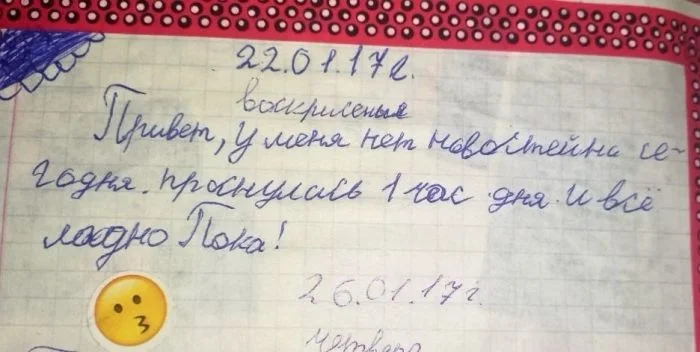 22.01.17г.
воскриленья
Привет, у меня нет новостей на се-
годня. проснулась 1 час дня. и всё
ладно Пока!
26.01.17г.
четверг